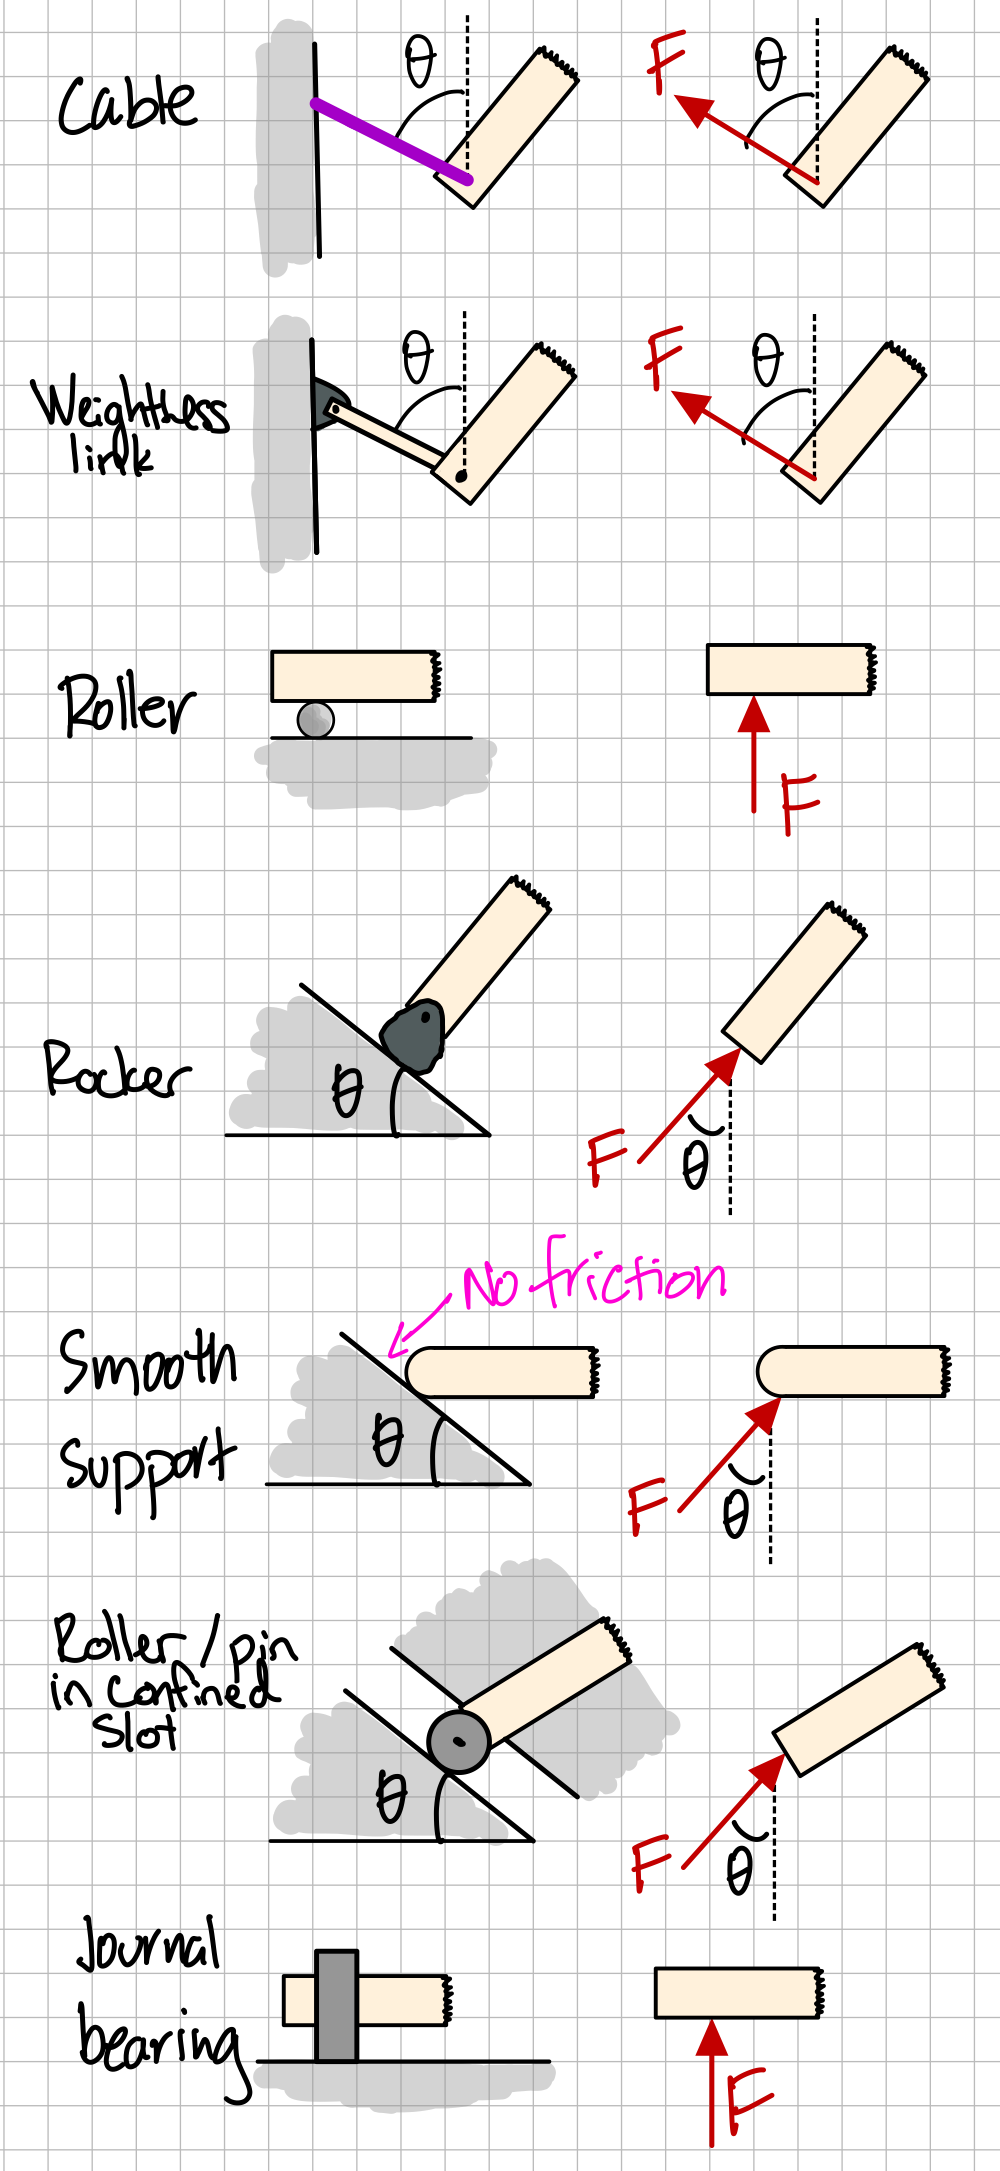 Cable
θ
F
θ
Weightless
link
θ
F
θ
Roller
F
Rocker
θ
F
θ
No friction
Smooth
Support
θ
F
θ
Roller/pin
in confined
slot
θ
F
θ
Journal
bearing
F